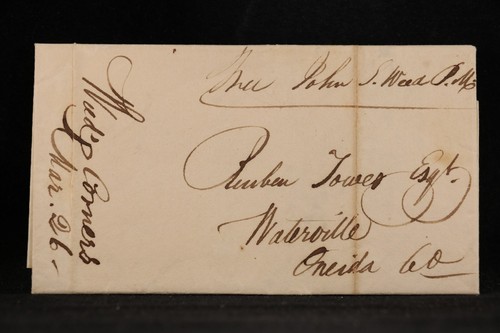 Free John S. Wood P.M.
Reuben Tower Esqr.
Waterville
Oneida Co
Wood's Corners
Mar. 26